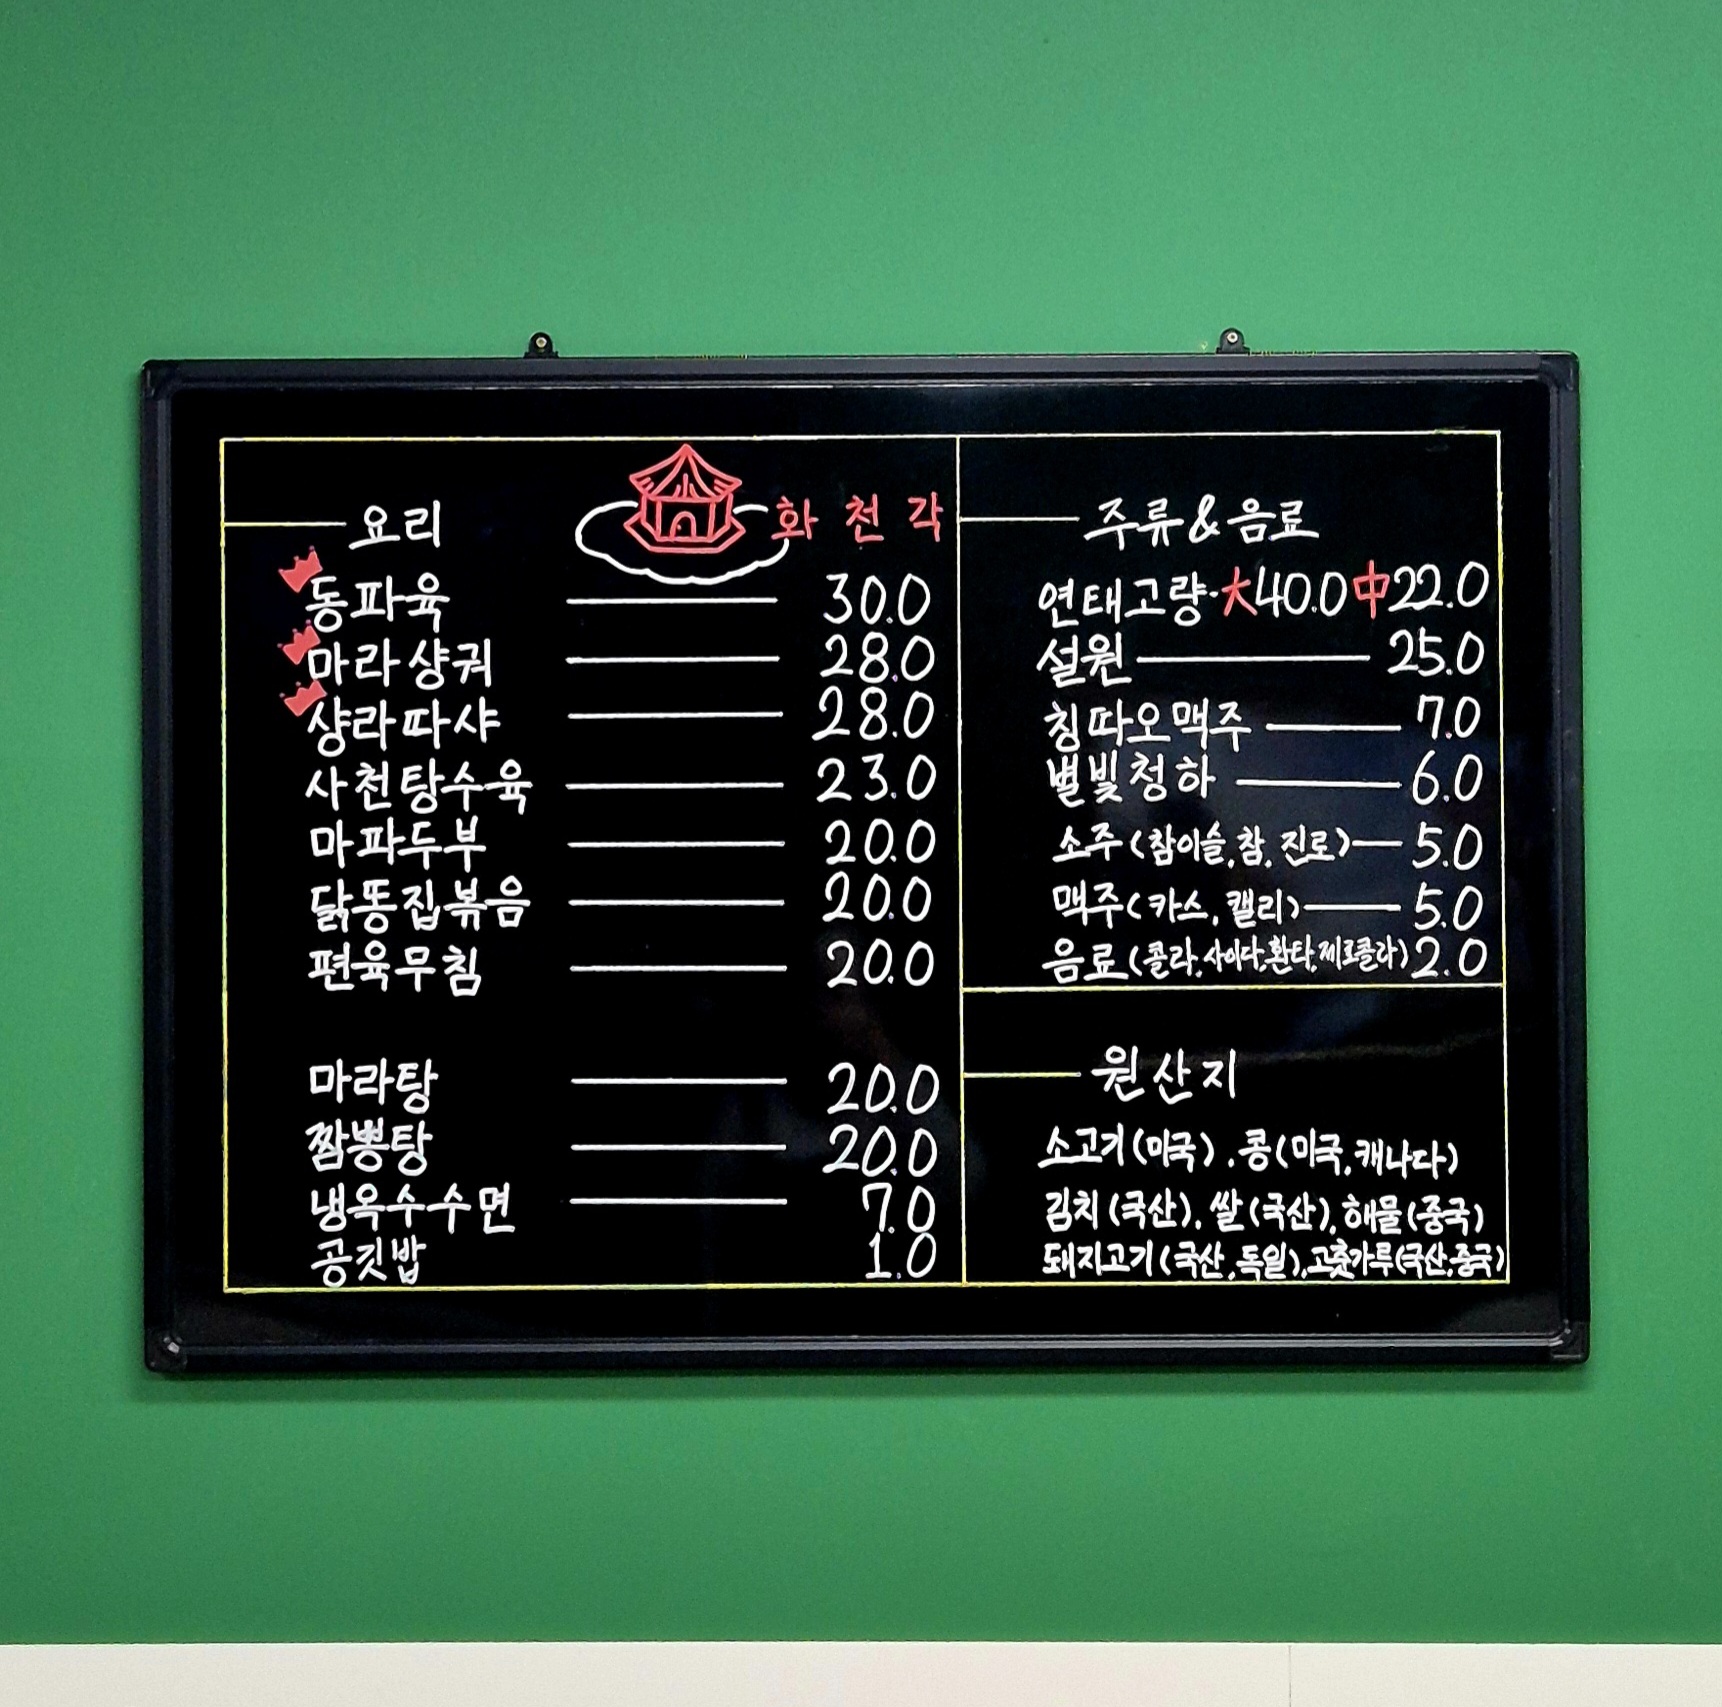 요리
화천각
동파육 30.0
마라샹궈 28.0
샹라따샤 28.0
사천탕수육 23.0
마파두부 20.0
닭똥집볶음 20.0
편육무침 20.0
마라탕 20.0
짬뽕탕 20.0
냉옥수수면 7.0
공깃밥 1.0
주류&음료
연태고량·大40.0 中22.0
설원 25.0
칭따오맥주 7.0
별빛청하 6.0
소주(참이슬,참,진로) 5.0
맥주(카스,켈리) 5.0
음료(콜라,사이다,환타,제로콜라) 2.0
원산지
소고기(미국),콩(미국,캐나다)
김치(국산),쌀(국산),해물(중국)
돼지고기(국산,독일),고춧가루(국산,중국)